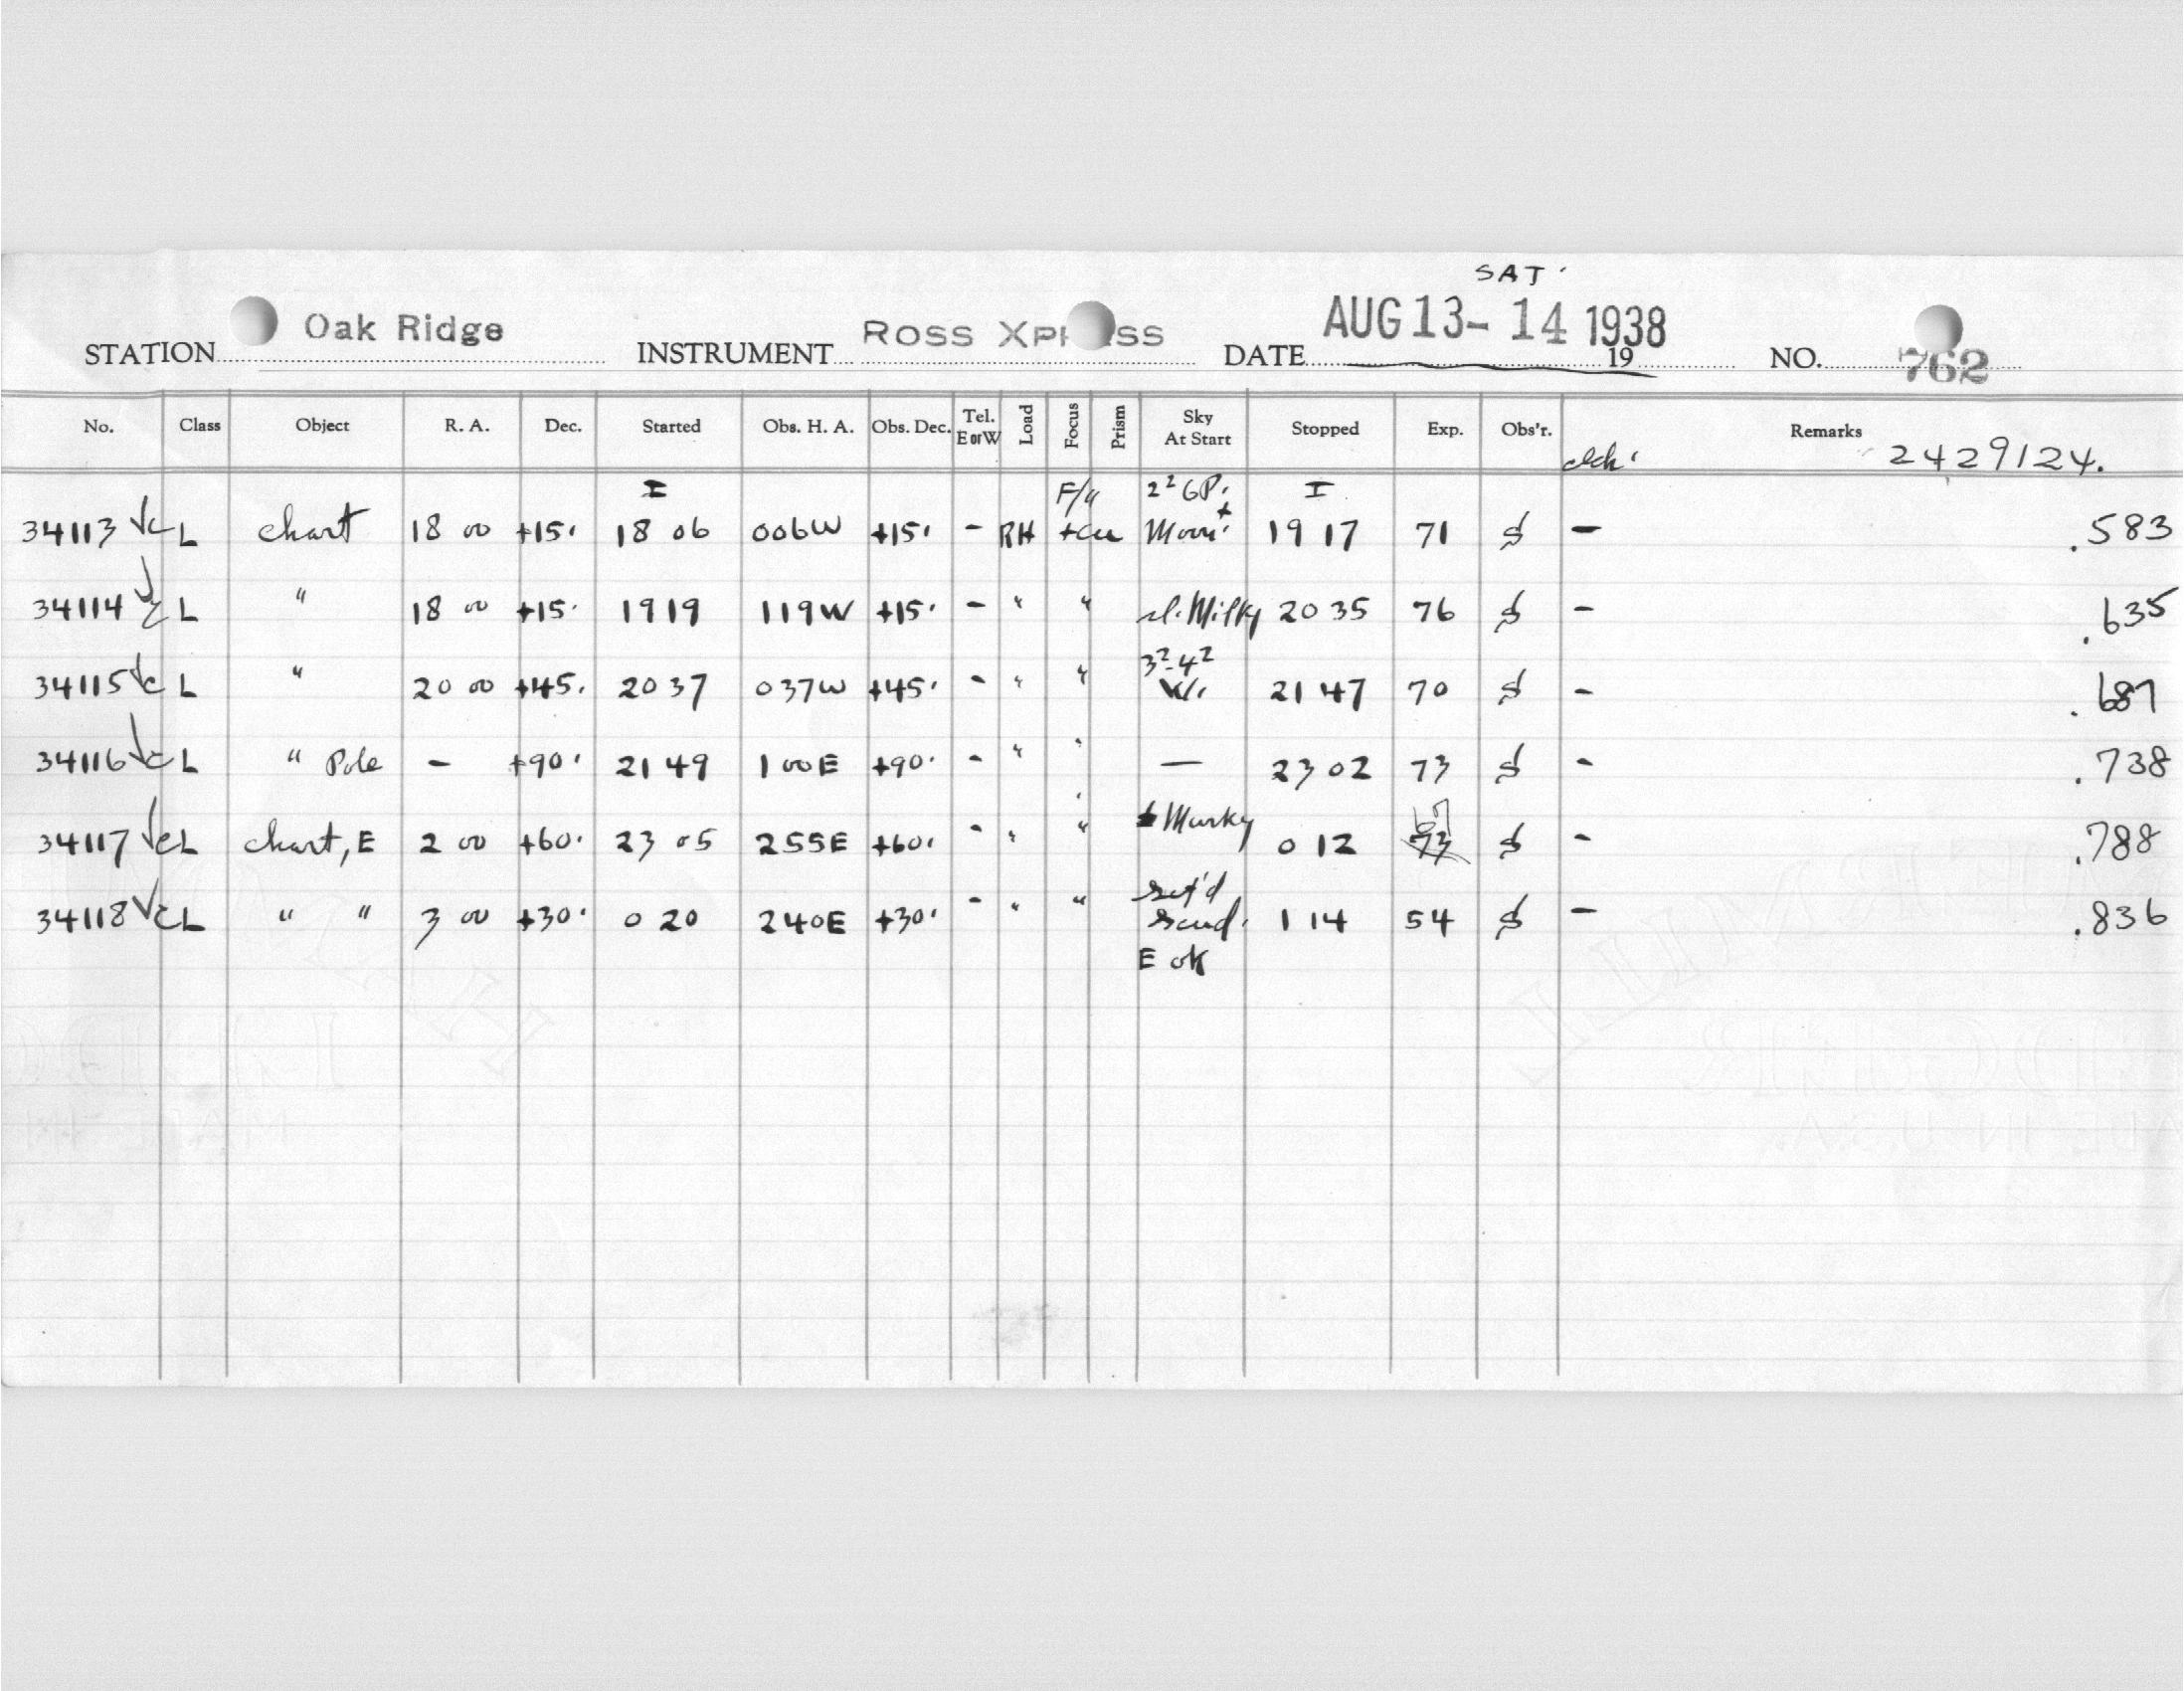 SAT.
STATION Oak Ridge INSTRUMENT ROSS XPRESS DATE AUG 13-14 1938 19 NO. 762
No. Class Object R. A. Dec. Started Obs. H. A. Obs. Dec. Tel. E or W Load Focus Prism Sky At Start Stopped Exp. Obs'r. Remarks
2429124.
I F/ I
34113 L chart 18 00 +15. 18 06 006W +15. - RH Moon 19 17 71 - .583
34114 L " 18 00 +15. 19 19 119W +15. - " " sl. Milky 20 35 76 - .635
3²-4²
34115 L " 20 00 +45. 20 37 037W +45. - " " 21 47 70 - .687
34116 L " Pole - +90. 21 49 1 00E +90. - " " — 23 02 73 - .738
34117 L chart, E 2 00 +60. 23 05 255E +60. - " " Murky 0 12 67 - .788
34118 L " " 3 00 +30. 0 20 240E +30. - " " scut'd scud. 1 14 54 - .836
E ok